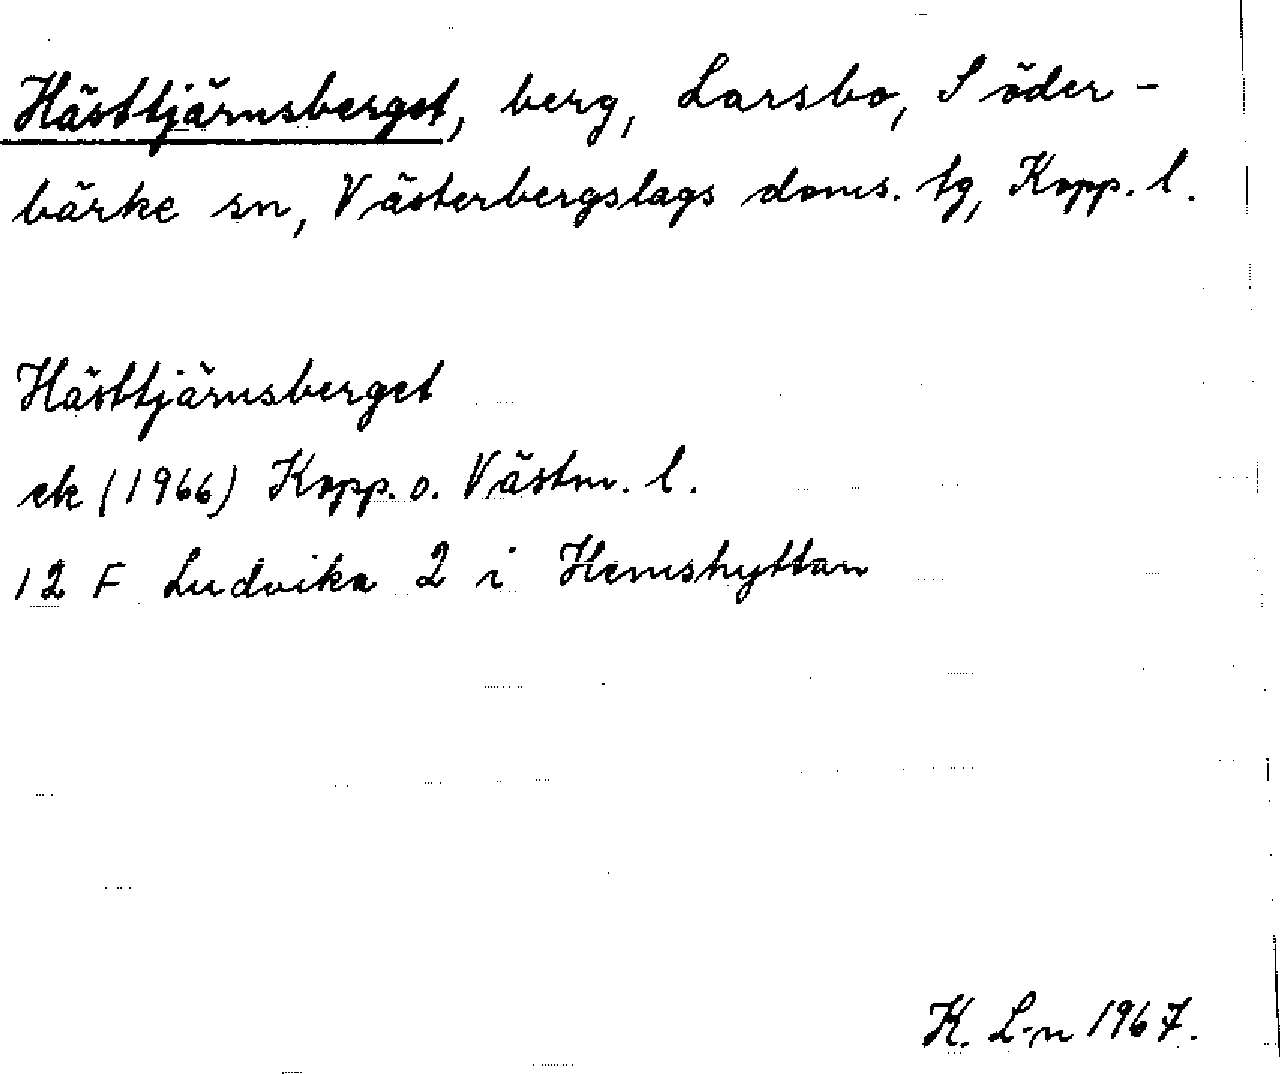 Hästtjärnsberget, berg, Larsbo, Söder-
bärke sn, Västerbergslags doms. tg, Kopp. l.
Hästtjärnsberget
ek (1966) Kopp. o. Västm. l.
12 F Ludvika 2 i Hemshyttan
K. L-n 1967.